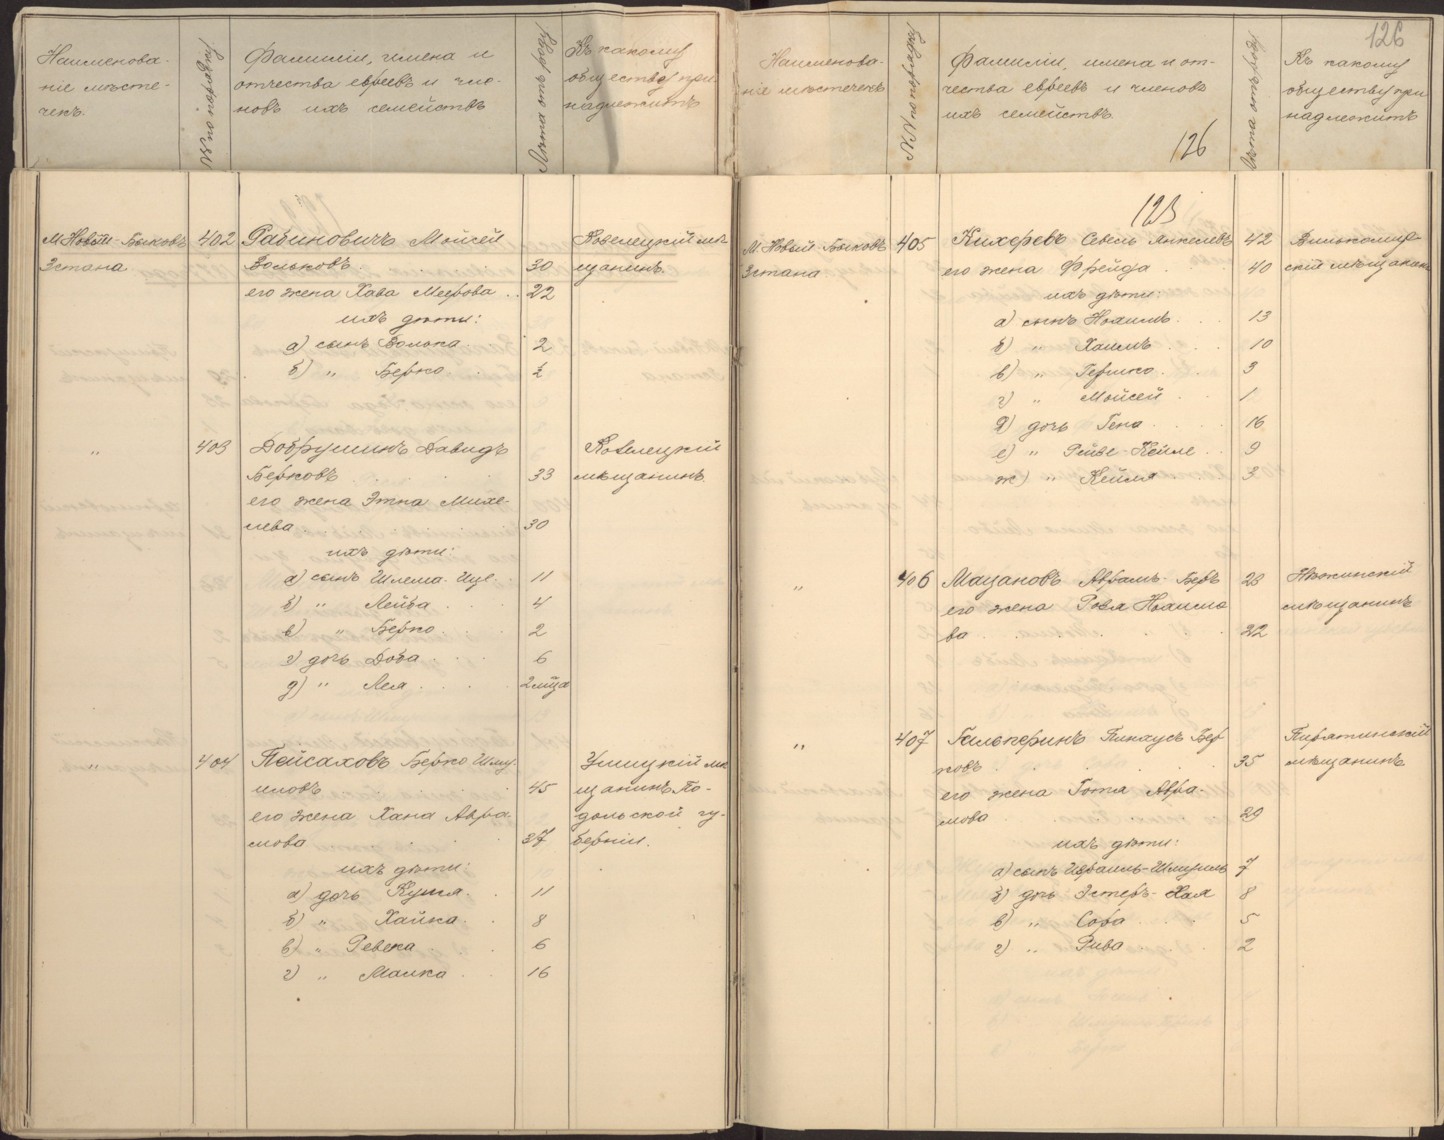 Наименова-
ніе мѣсте-
чекъ.
№№ по порядку.
Фамиліи, имена и
отчества евреевъ и чле-
новъ ихъ семействъ
Лѣта отъ роду.
Къ какому
обществу при-
надлежитъ
М. Новый-Быковъ
3 стана
402
Рабиновичъ Мойсей
Вольковъ
30
Козелецкій мѣ-
щанинъ.
его жена Хава Меерова
22
ихъ дѣти:
а) сынъ Волько
2
б) " Берко
½
"
403
Добрушинъ Давидъ
Берковъ
33
Козелецкій
мѣщанинъ.
его жена Этка Михе-
лева
30
ихъ дѣти:
а) сынъ Шлема-Ице
11
б) " Лейба
4
в) " Берко
2
г) дочь Доба
6
д) " Лея
2 мца
"
404
Пейсаховъ Берко Шму-
иловъ
45
Ушицкій мѣ-
щанинъ По-
дольской гу-
берніи.
его жена Хана Авра-
мова
37
ихъ дѣти:
а) дочь Куня
11
б) " Хайка
8
в) " Ревека
6
г) " Малка
16
126
Наименова-
ніе мѣстечекъ
№№ по порядку
Фамиліи, имена и от-
чества евреевъ и членовъ
ихъ семействъ.
126
Лѣта отъ роду
Къ какому
обществу при
надлежитъ
123
М. Новый-Быковъ
3 стана
405
Кихеревъ Севель Янкелевъ
42
Вилькомір-
скій мѣщанинъ
его жена Фрейда
40
ихъ дѣти:
а) сынъ Нохимъ
13
б) " Хаимъ
10
в) " Гершко
3
г) " Мойсей
1
д) дочь Гена
16
е) " Рейзе-Кейле
9
ж) " Кейля
3
"
406
Мацановъ Абрамъ-Беръ
23
Нѣжинскій
мѣщанинъ
его жена Рося Нохимо
ва
22
"
407
Гальперинъ Пинхусъ Бер
ковъ
35
Пирятинскій
мѣщанинъ
его жена Готя Авра-
мова
29
ихъ дѣти:
а) сынъ Израиль-Шмуиль
7
б) дочь Эстеръ-Хая
8
в) " Сора
5
г) " Рива
2